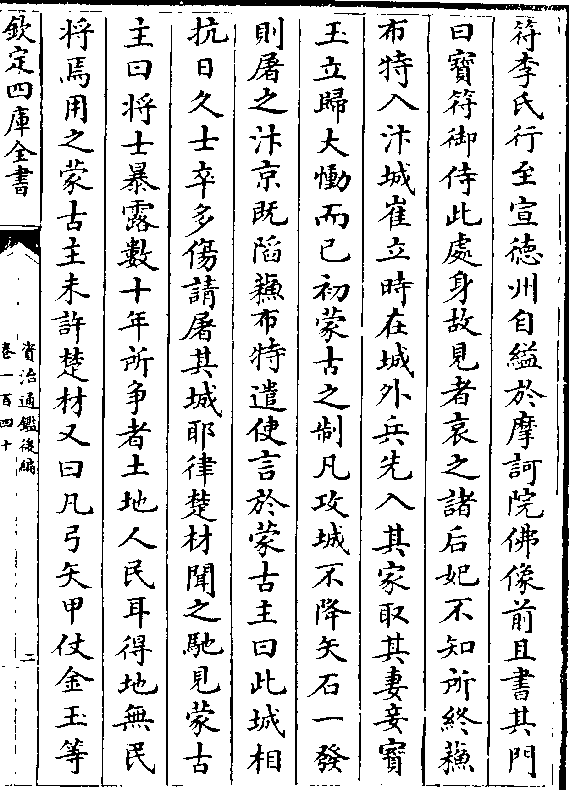 符李氏行至宣徳州自縊於摩訶院佛像前且書其門
曰寶符御侍此處身故見者哀之諸后妃不知所終蘓
布特入汴城崔立時在城外兵先入其家取其妻妾寳
玉立歸大慟而已初蒙古之制凡攻城不降矢石一發
則屠之汴京既䧟蘓布特遣使言於蒙古主曰此城相
抗日久士卒多傷請屠其城耶律楚材聞之馳見蒙古
主曰将士暴露數十年所争者土地人民耳得地無民
将焉用之蒙古主未許楚材又曰凡弓矢甲仗金玉等
欽定四庫全書
資治通鑑後編
卷一百四十
二